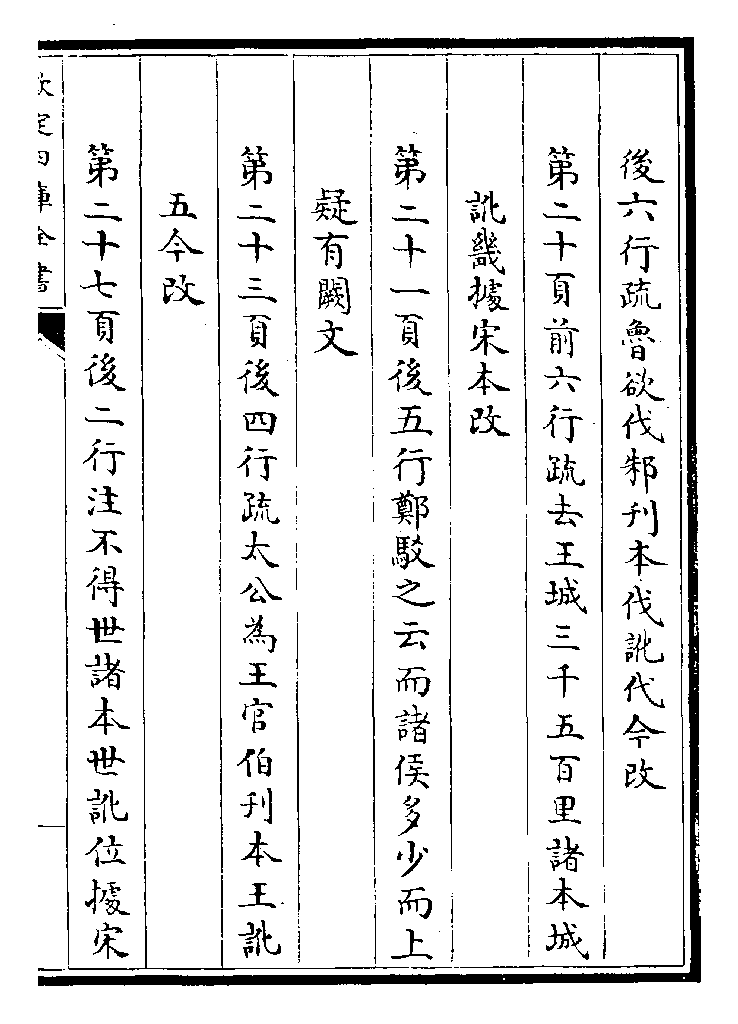 後六行疏魯欲伐邾刋本伐訛代今改
第二十頁前六行疏去王城三千五百里諸本城
訛畿據宋本改
第二十一頁後五行鄭駁之云而諸侯多少而上
疑有闕文
第二十三頁後四行疏太公為王官伯刋本王訛
五今改
第二十七頁後二行注不得世諸本世訛位據宋
欽定四庫全書